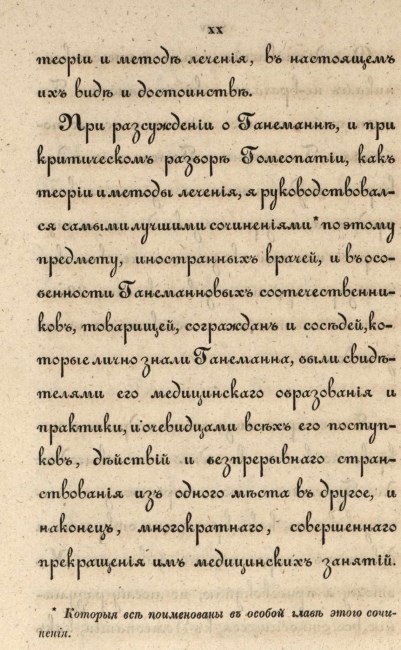 xx
теоріи и методѣ леченія, въ настоящемъ
ихъ видѣ и достоинствѣ.
При разсужденіи о Ганеманнѣ, и при
критическомъ разборѣ Гомеопатіи, какъ
теоріи и методы леченія, я руководствовал-
ся самыми лучшими сочиненіями* по этому
предмету, иностранныхъ врачей, и въ осо-
бенности Ганеманновыхъ соотечественни-
ковъ, товарищей, согражданъ и сосѣдей, ко-
торые лично знали Ганеманна, были свидѣ-
телями его медицинскаго образованія и
практики, и очевидцами всѣхъ его поступ-
ковъ, дѣйствій и безпрерывнаго стран-
ствованія изъ одного мѣста въ другое, и
наконецъ, многократнаго, совершеннаго
прекращенія имъ медицинскихъ занятій.
* Которыя всѣ поименованы въ особой главѣ этого сочи-
ненія.